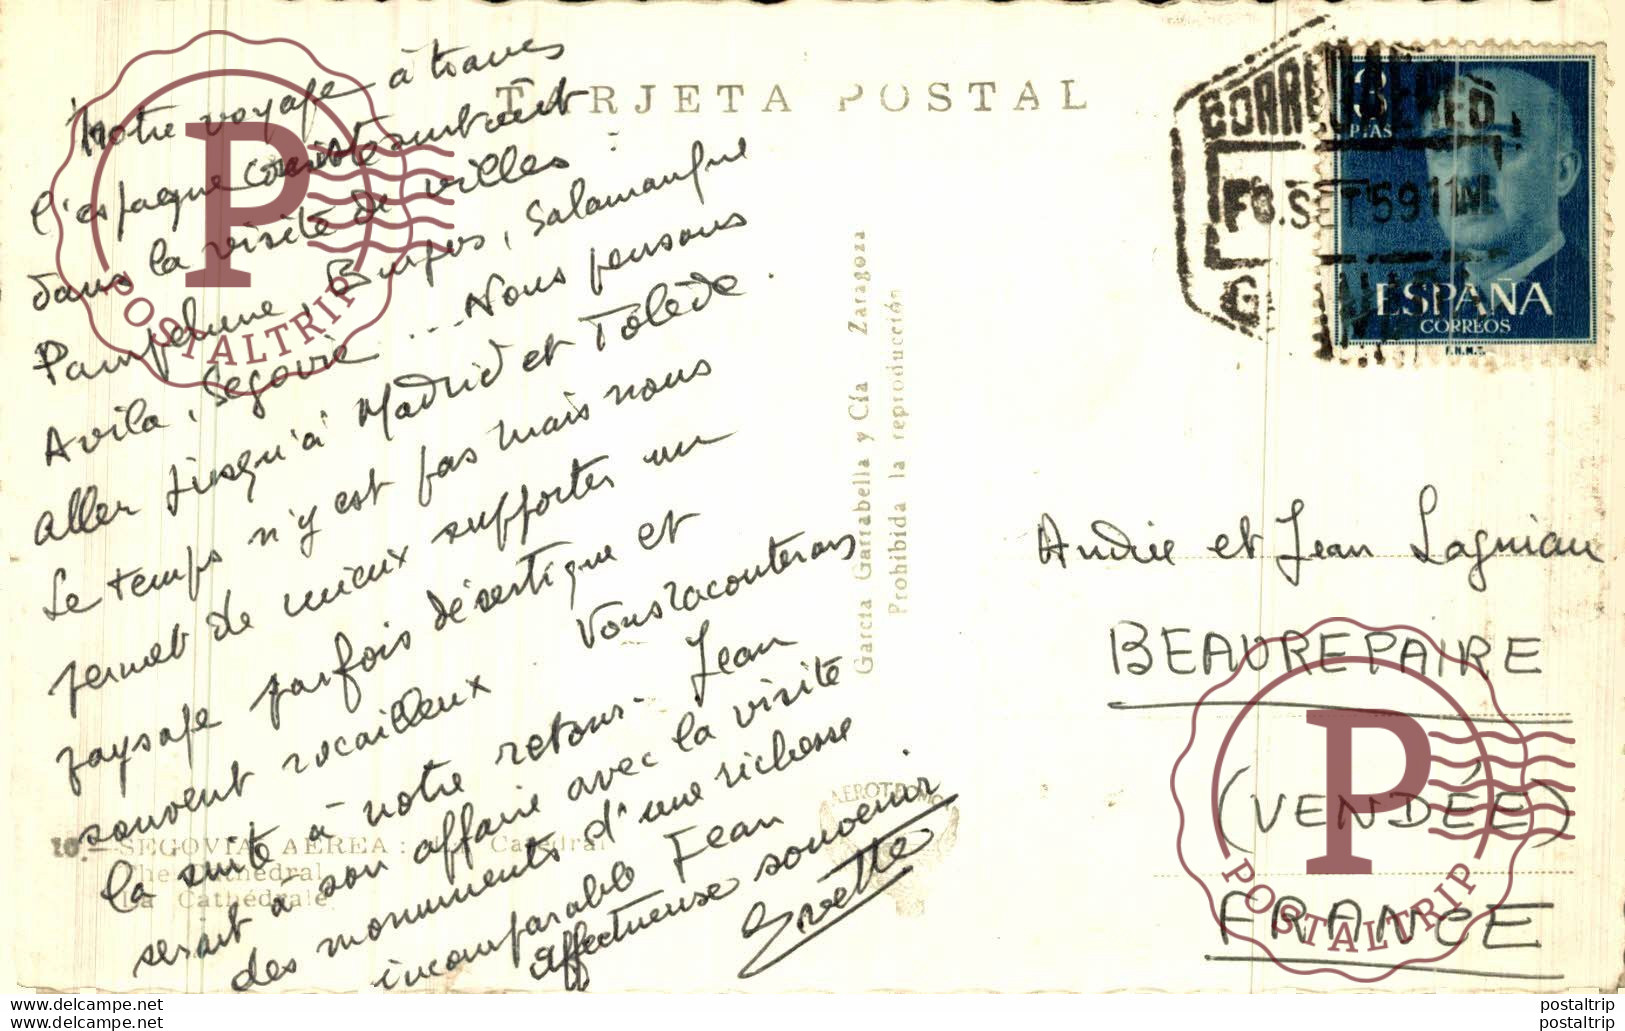 TARJETA POSTAL
Notre voyage à travers
l'espagne consiste surtout
dans la visite de villes :
Pampelune, Burgos, Salamanque
Avila, Segovie ... Nous pensons
aller jusqu'à Madrid et Tolède.
Le temps n'y est pas mais nous
permet de mieux supporter un
paysage parfois désertique et
souvent rocailleux Vous raconterons
la suite à notre retour. Jean
serait à son affaire avec la visite
des monuments d'une richesse
incomparable Jean
affectueux souvenir
Yvette
10.- SEGOVIA AEREA: Catedral
The Cathedral
La Cathédrale
García Garrabella y Cía Zaragoza
Prohibida la reproducción
CORREO AEREO
SET 59 11
3
PTAS
ESPAÑA
CORREOS
F.N.M.T.
Andrée et Jean
BEAUREPAIRE
(VENDÉE)
FRANCE
P
POSTALTRIP
P
POSTALTRIP
postaltrip
postaltrip
postaltrip
postaltrip